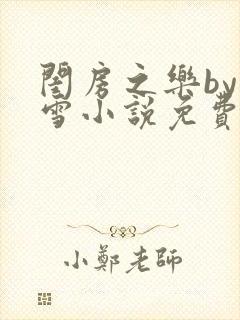 閨房之樂by
雪小說免費
小鄭老師